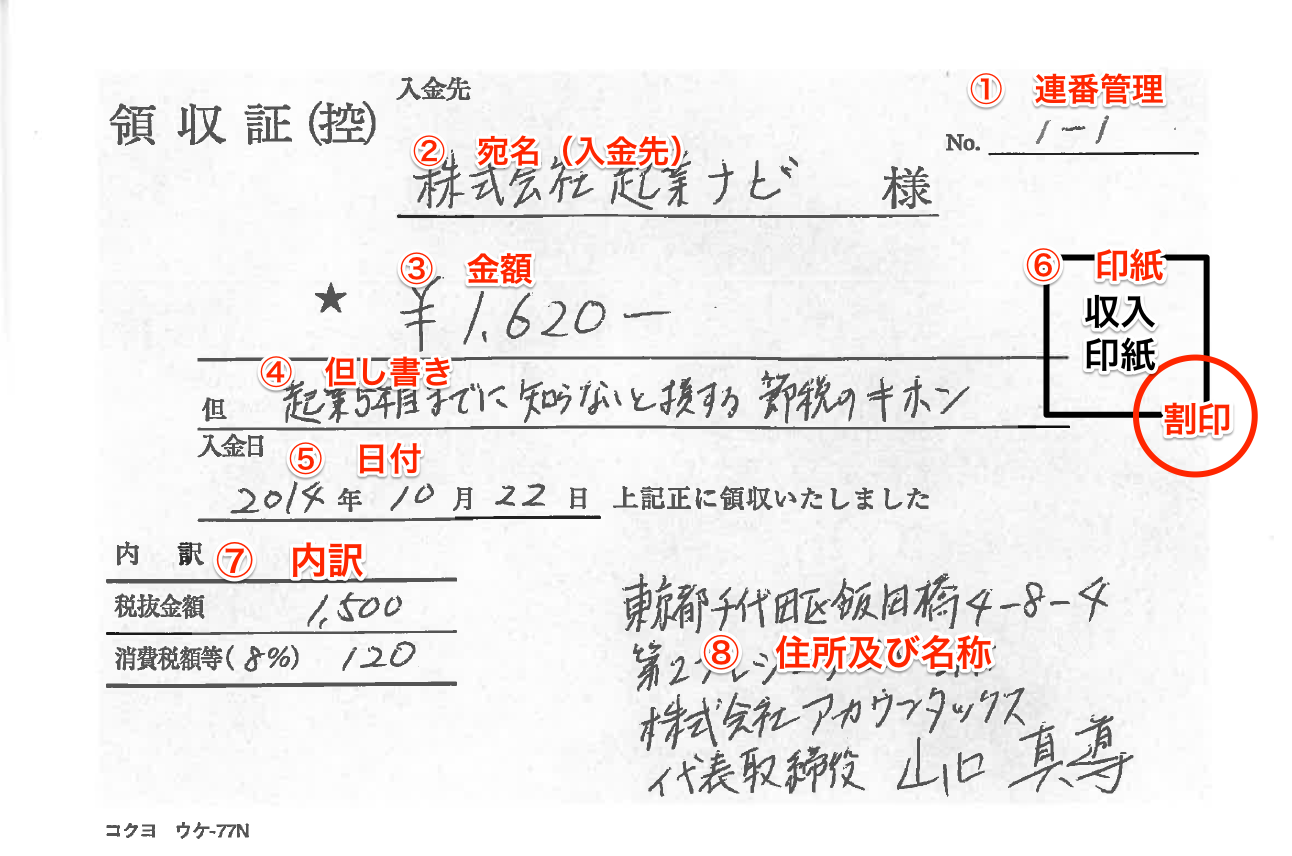 領収証(控)
入金先
① 連番管理
No. 1-1
② 宛名（入金先）
株式会社 起業ナビ 様
③ 金額
★ ¥1,620-
⑥ 印紙
収入
印紙
割印
④ 但し書き
但 起業5年目までに知らないと損する 節税のキホン
入金日
⑤ 日付
2014年 10月 22日 上記正に領収いたしました
内訳
⑦ 内訳
税抜金額 1,500
消費税額等(8%) 120
東京都千代田区飯田橋4-8-4
⑧ 住所及び名称
第2
株式会社アカウンタックス
代表取締役 山口 真導
コクヨ ウケ-77N